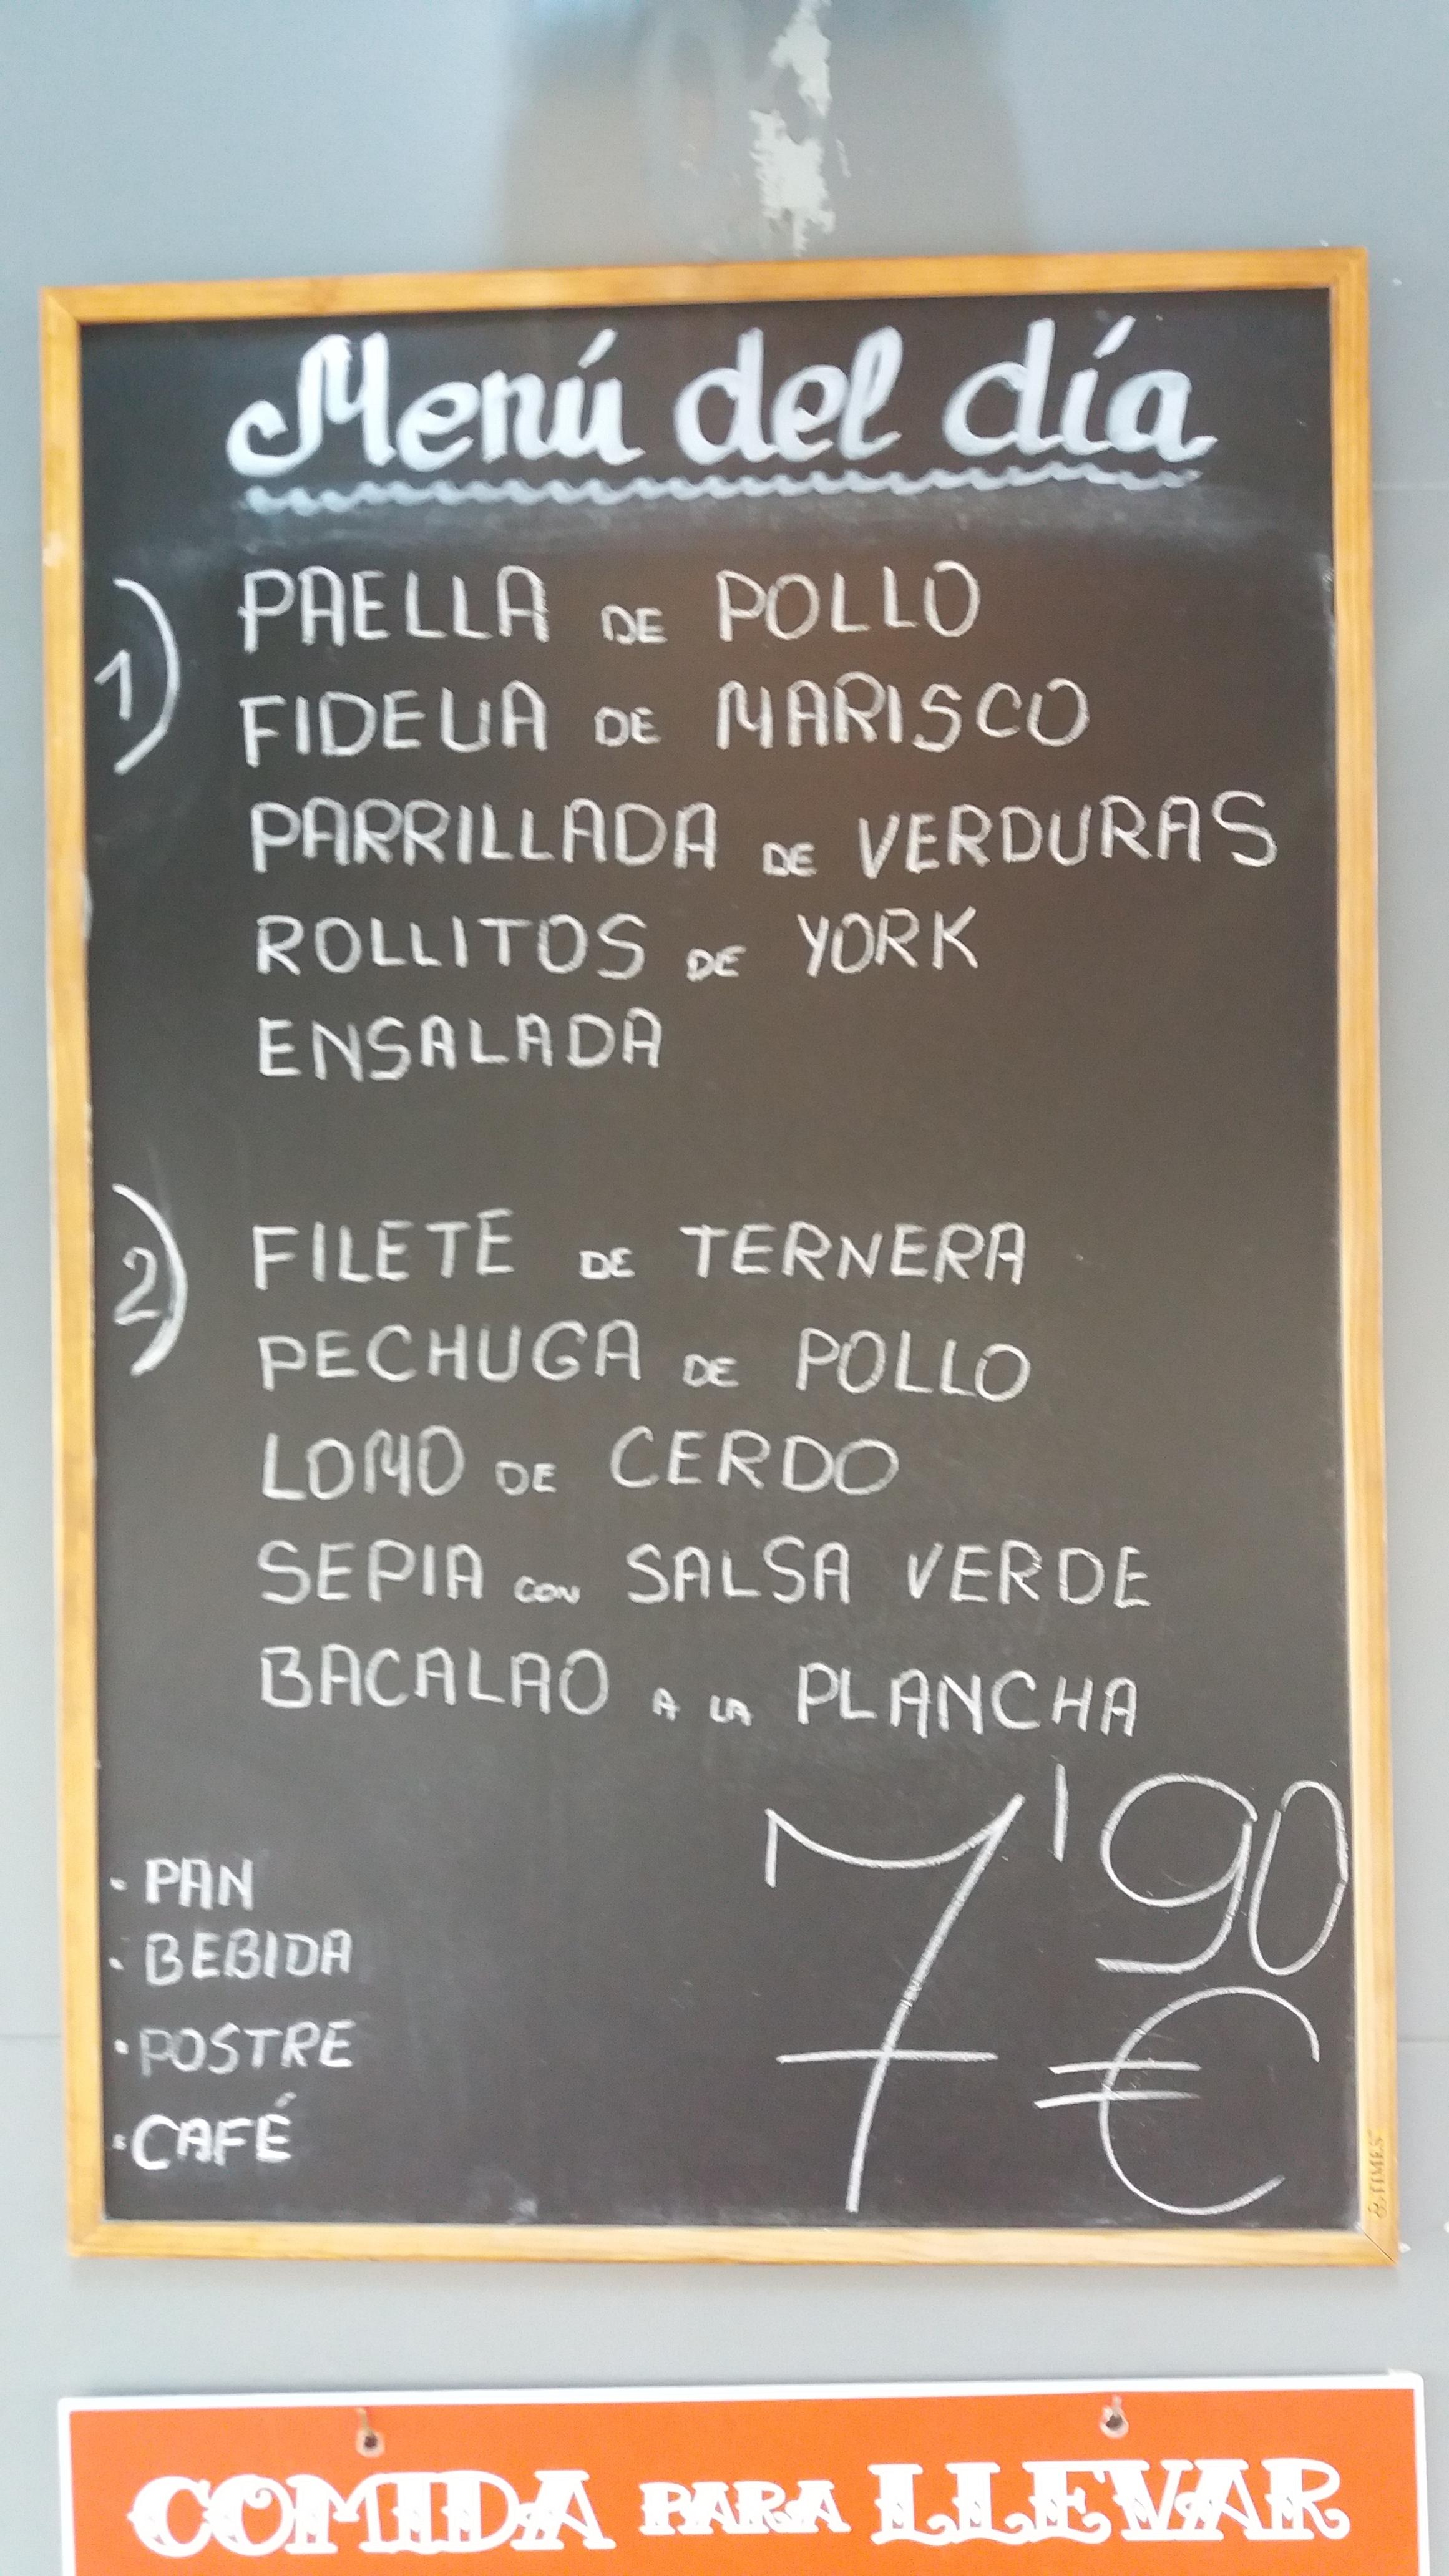 Menú del día
1)
PAELLA DE POLLO
FIDEUA DE MARISCO
PARRILLADA DE VERDURAS
ROLLITOS DE YORK
ENSALADA
2)
FILETE DE TERNERA
PECHUGA DE POLLO
LOMO DE CERDO
SEPIA CON SALSA VERDE
BACALAO A LA PLANCHA
· PAN
· BEBIDA
· POSTRE
· CAFÉ
7'90 €
COMIDA PARA LLEVAR